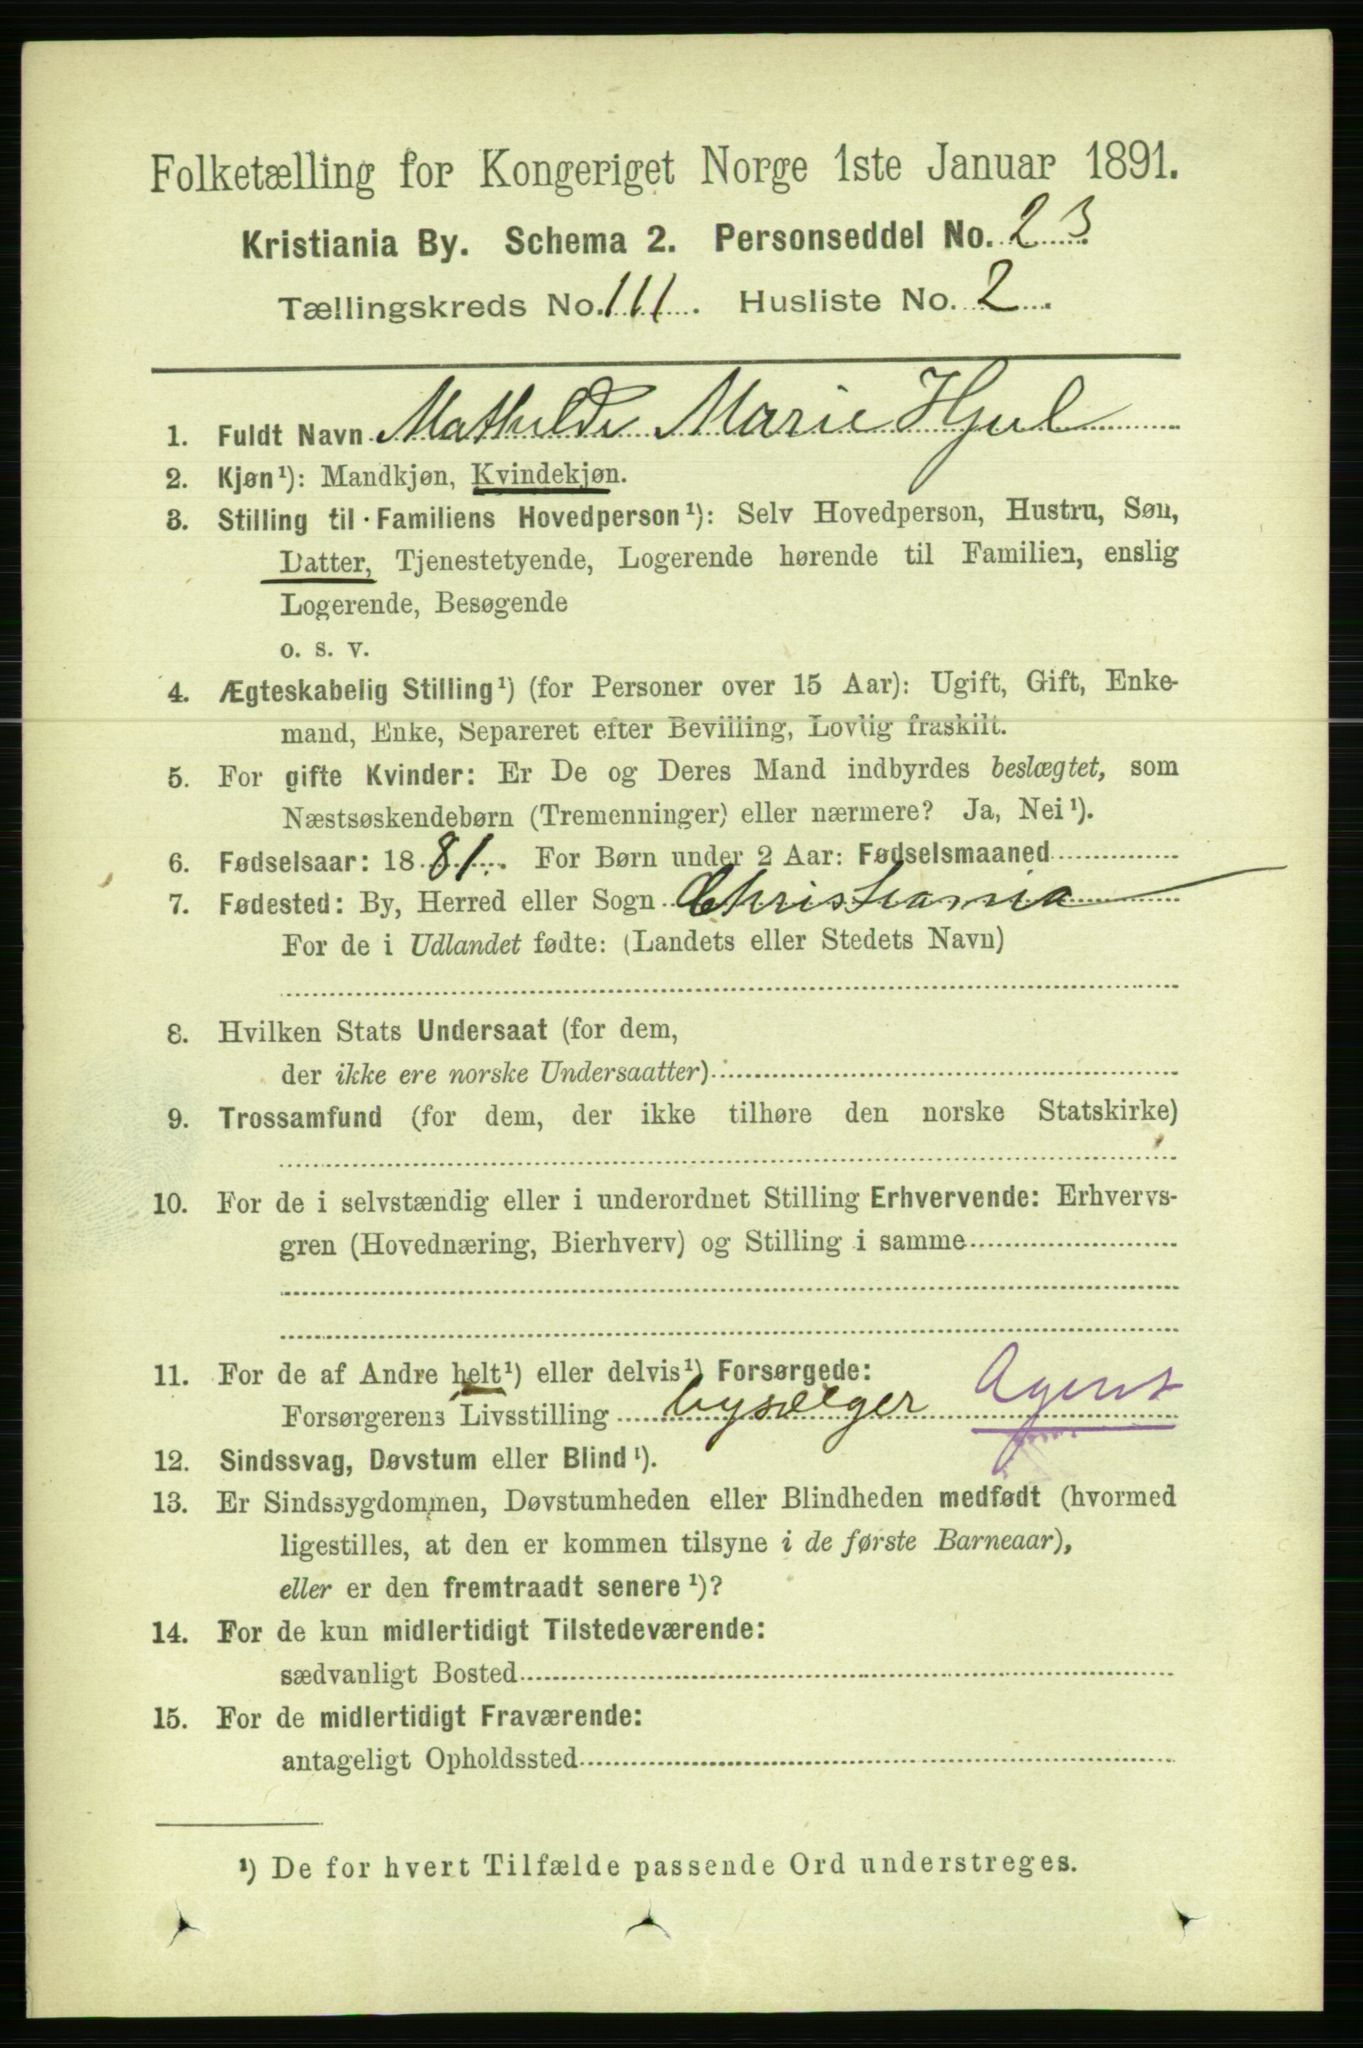 Folketælling for Kongeriget Norge 1ste Januar 1891.
Kristiania By. Schema 2. Personseddel No. 23.
Tællingskreds No. 111. Husliste No. 2.
1. Fuldt Navn Mathilde Marie Hjul
2. Kjøn¹): Mandkjøn, Kvindekjøn.
3. Stilling til Familiens Hovedperson¹): Selv Hovedperson, Hustru, Søn,
Datter, Tjenestetyende, Logerende hørende til Familien, enslig
Logerende, Besøgende
o. s. v.
4. Ægteskabelig Stilling¹) (for Personer over 15 Aar): Ugift, Gift, Enke-
mand, Enke, Separeret efter Bevilling, Lovlig fraskilt.
5. For gifte Kvinder: Er De og Deres Mand indbyrdes beslægtet, som
Næstsøskendebørn (Tremenninger) eller nærmere? Ja, Nei¹).
6. Fødselsaar: 1881. For Børn under 2 Aar: Fødselsmaaned
7. Fødested: By, Herred eller Sogn Christiania
For de i Udlandet fødte: (Landets eller Stedets Navn)
8. Hvilken Stats Undersaat (for dem,
der ikke ere norske Undersaatter)
9. Trossamfund (for dem, der ikke tilhøre den norske Statskirke)
10. For de i selvstændig eller i underordnet Stilling Erhvervende: Erhvervs-
gren (Hovednæring, Bierhverv) og Stilling i samme
11. For de af Andre helt¹) eller delvis¹) Forsørgede:
Forsørgerens Livsstilling bysælger Agent
12. Sindssvag, Døvstum eller Blind¹).
13. Er Sindssygdommen, Døvstumheden eller Blindheden medfødt (hvormed
ligestilles, at den er kommen tilsyne i de første Barneaar),
eller er den fremtraadt senere¹)?
14. For de kun midlertidigt Tilstedeværende:
sædvanligt Bosted
15. For de midlertidigt Fraværende:
antageligt Opholdssted
¹) De for hvert Tilfælde passende Ord understreges.